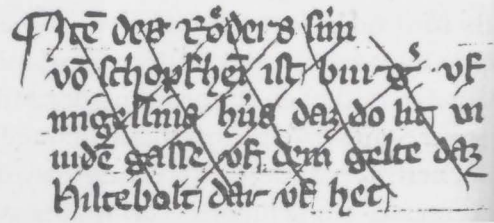 ¶ Itē des Röders sún
vō schopfheī ist burgˢ vf
hús daz do lit in
iudē gasse vf dem gelte daz
hiltebolt dar vf het